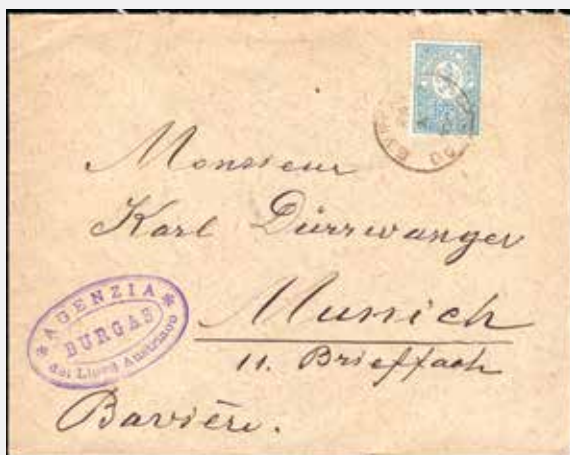 Monsieur
Karl Dürrwanger
Munich
11. Brieffach
Bavière.
* AGENZIA *
BURGAS
del Lloyd Austriaco